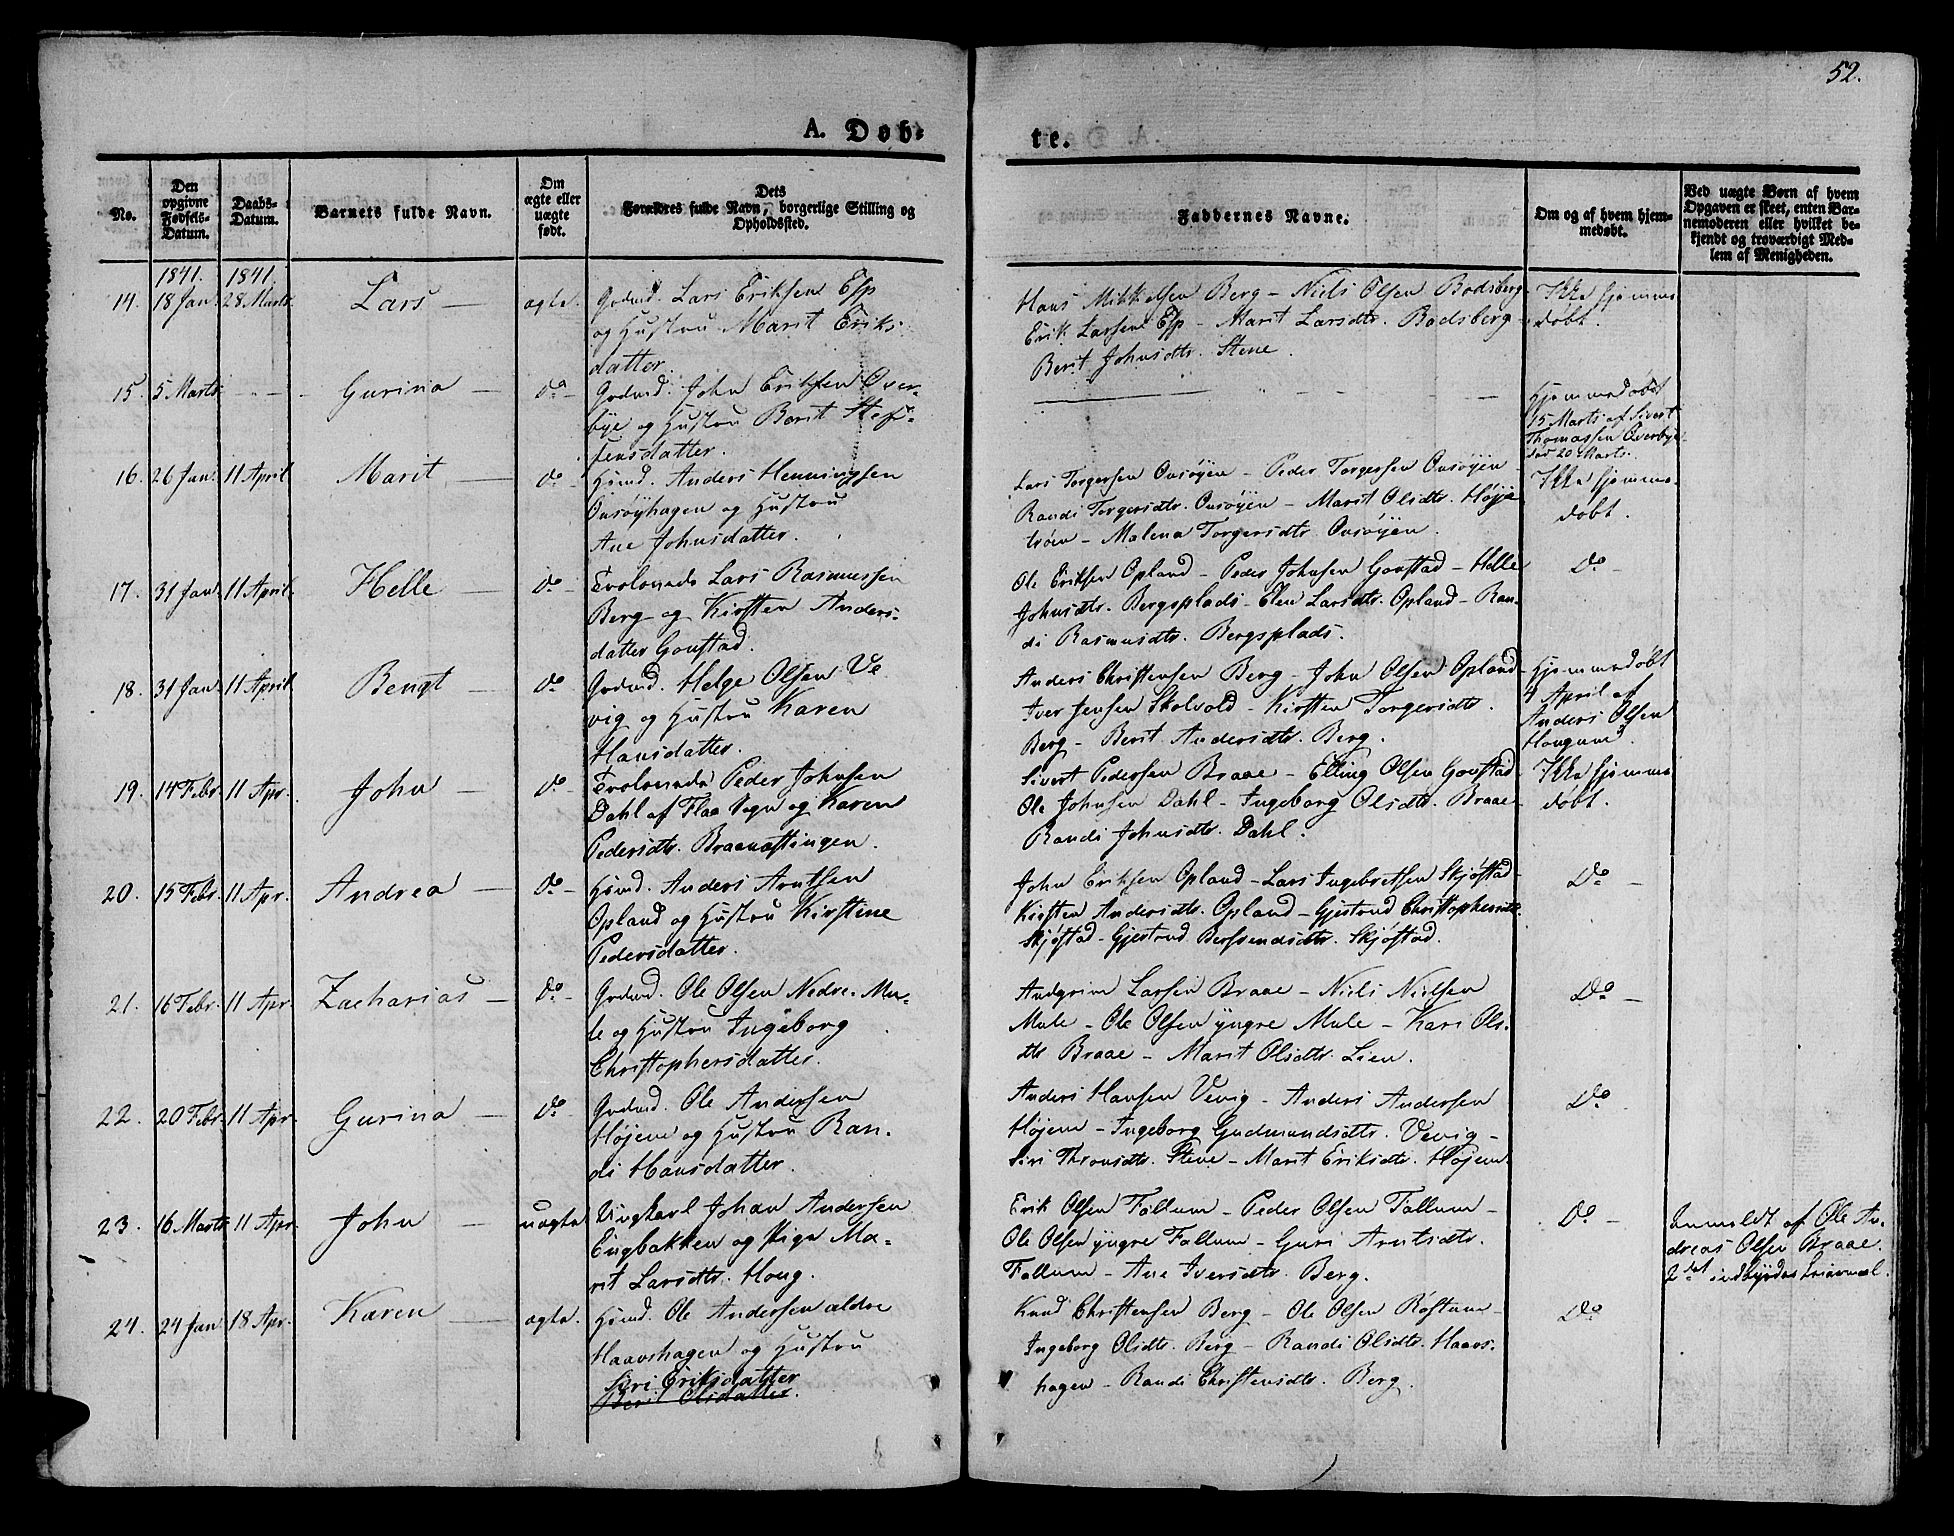 52.
A. Døb-
te.
No.
Den
opgivne
Fødsels-
Datum.
Daabs-
Datum.
Barnets fulde Navn.
Om
ægte eller
uægte
født.
Dets
Forældres fulde Navn, borgerlige Stilling og
Opholdssted.
Faddernes Navne.
Om og af hvem hjem-
medøbt.
Ved uægte Børn af hvem
Opgaven er skeet, enten Bar-
nemoderen eller hvilket be-
kjendt og troværdigt Med-
lem af Menigheden.
1841. 1841.
14. 18 Jan. 28 Marts Lars — ægte. Grdmd. Lars Eriksen Esp
og Hustru Marit Eriks-
datter.
Hans Mikkelsen Berg – Niels Olsen Bodsberg-
Erik Larsen Esp – Marit Larsdtr. Bodsberg-
Berit Johnsdtr. Stene.
Ikke hjemme-
døbt.
15. 5 Marts – – – Gurina — do – Grdmd. John Eriksen Over-
bye og Hustru Berit Stef-
fensdatter.
Hjemmedøbt
15 Marts af Sivert
Thomassen Overbye
død 20 Marts.
16. 26 Jan. 11 April Marit — do – Hsmd. Anders Henningsen
Onsøyhagen og Hustru
Ane Johnsdatter.
Lars Torgersen Onsøyen – Peder Torgersen Onsøyen –
Randi Torgersdtr. Onsøyen – Marit Olsdtr. Høje-
trøen – Malena Torgersdtr. Onsøyen.
Ikke hjemme-
døbt.
17. 31 Jan. 11 April. Helle — do – Trolovede Lars Rasmussen
Berg og Kirsten Anders-
datter Gonstad.
Ole Eriksen Opland – Peder Johnsen Gonstad – Helle
Johnsdtr. Bergsplads – Elen Larsdtr. Opland – Ran-
di Rasmusdtr. Bergsplads.
Do –
18. 31 Jan. 11 April Bengt — do – Grdmd. Helge Olsen Ve-
vig og Hustru Karen
Hansdatter.
Anders Christensen Berg – John Olsen Opland-
Iver Jensen Skolvold – Kirsten Torgersdtr.
Berg – Berit Andersdtr. Berg.
Hjemmedøbt
4 April af
Anders Olsen
Hougum.
19. 14 Febr 11 Apr. John — do – Trolovede Peder Johnsen
Dahl af Flaa Sogn og Karen
Pedersdtr. Braaenastingen.
Sivert Pedersen Braae – Elling Olsen Gonstad-
Ole Johnsen Dahl – Ingeborg Olsdtr. Braae-
Randi Johnsdtr. Dahl.
Ikke hjemme-
døbt.
20. 15 Febr. 11 Apr. Andrea — do – Hsmd. Anders Arntsen
Opland og Hustru Kirstine
Pedersdatter.
John Eriksen Opland – Lars Ingebretsen Skjøstad-
Kirsten Andersdtr. Opland – Gjertrud Christophersdtr.
Skjøstad – Gjertrud Berhsendsdtr. Skjøstad.
Do –
21. 16 Febr. 11 Apr. Zacharias — do – Grdmd. Ole Olsen Nedre-Mu-
le og Hustru Ingeborg
Christophersdatter.
Andgrim Larsen Braae – Niels Nielsen
Mule – Ole Olsen yngre Mule – Kari Ols-
dtr Braae – Marit Olsdtr. Lien.
Do –
22. 20 Febr. 11 Apr. Gurina — do – Grdmd. Ole Andersen
Højem og Hustru Ran-
di Hansdatter.
Anders Hansen Vevig – Anders Andersen
Højem – Ingeborg Gudmundsdtr. Vevig –
Siri Thronsdtr. Stene – Marit Eriksdtr. Højem.
Do.
23. 16 Marts 11 Apr. John — uægte Ungkarl Johan Andersen
Engbakken og Pige Ma-
rit Larsdtr. Houg.
Erik Olsen Follum – Peder Olsen Follum –
Ole Olsen yngre Follum – Guri Arntsdtr.
Follum – Ane Iversdtr. Berg.
Do –
Anmeldt af Ole An-
dreas Olsen Braae.
2det indbyrdes
24. 24 Jan 18 Apr. Karen — ægte. Hsmd. Ole Andersen ældre
Haavshagen og Hustru
Siri Eriksdatter
Berit Olsdatter.
Knud Christensen Berg – Ole Olsen Røstum –
Ingeborg Olsdtr. Berg – Randi Olsdtr. Haavs-
hagen – Randi Christensdtr. Berg.
Do